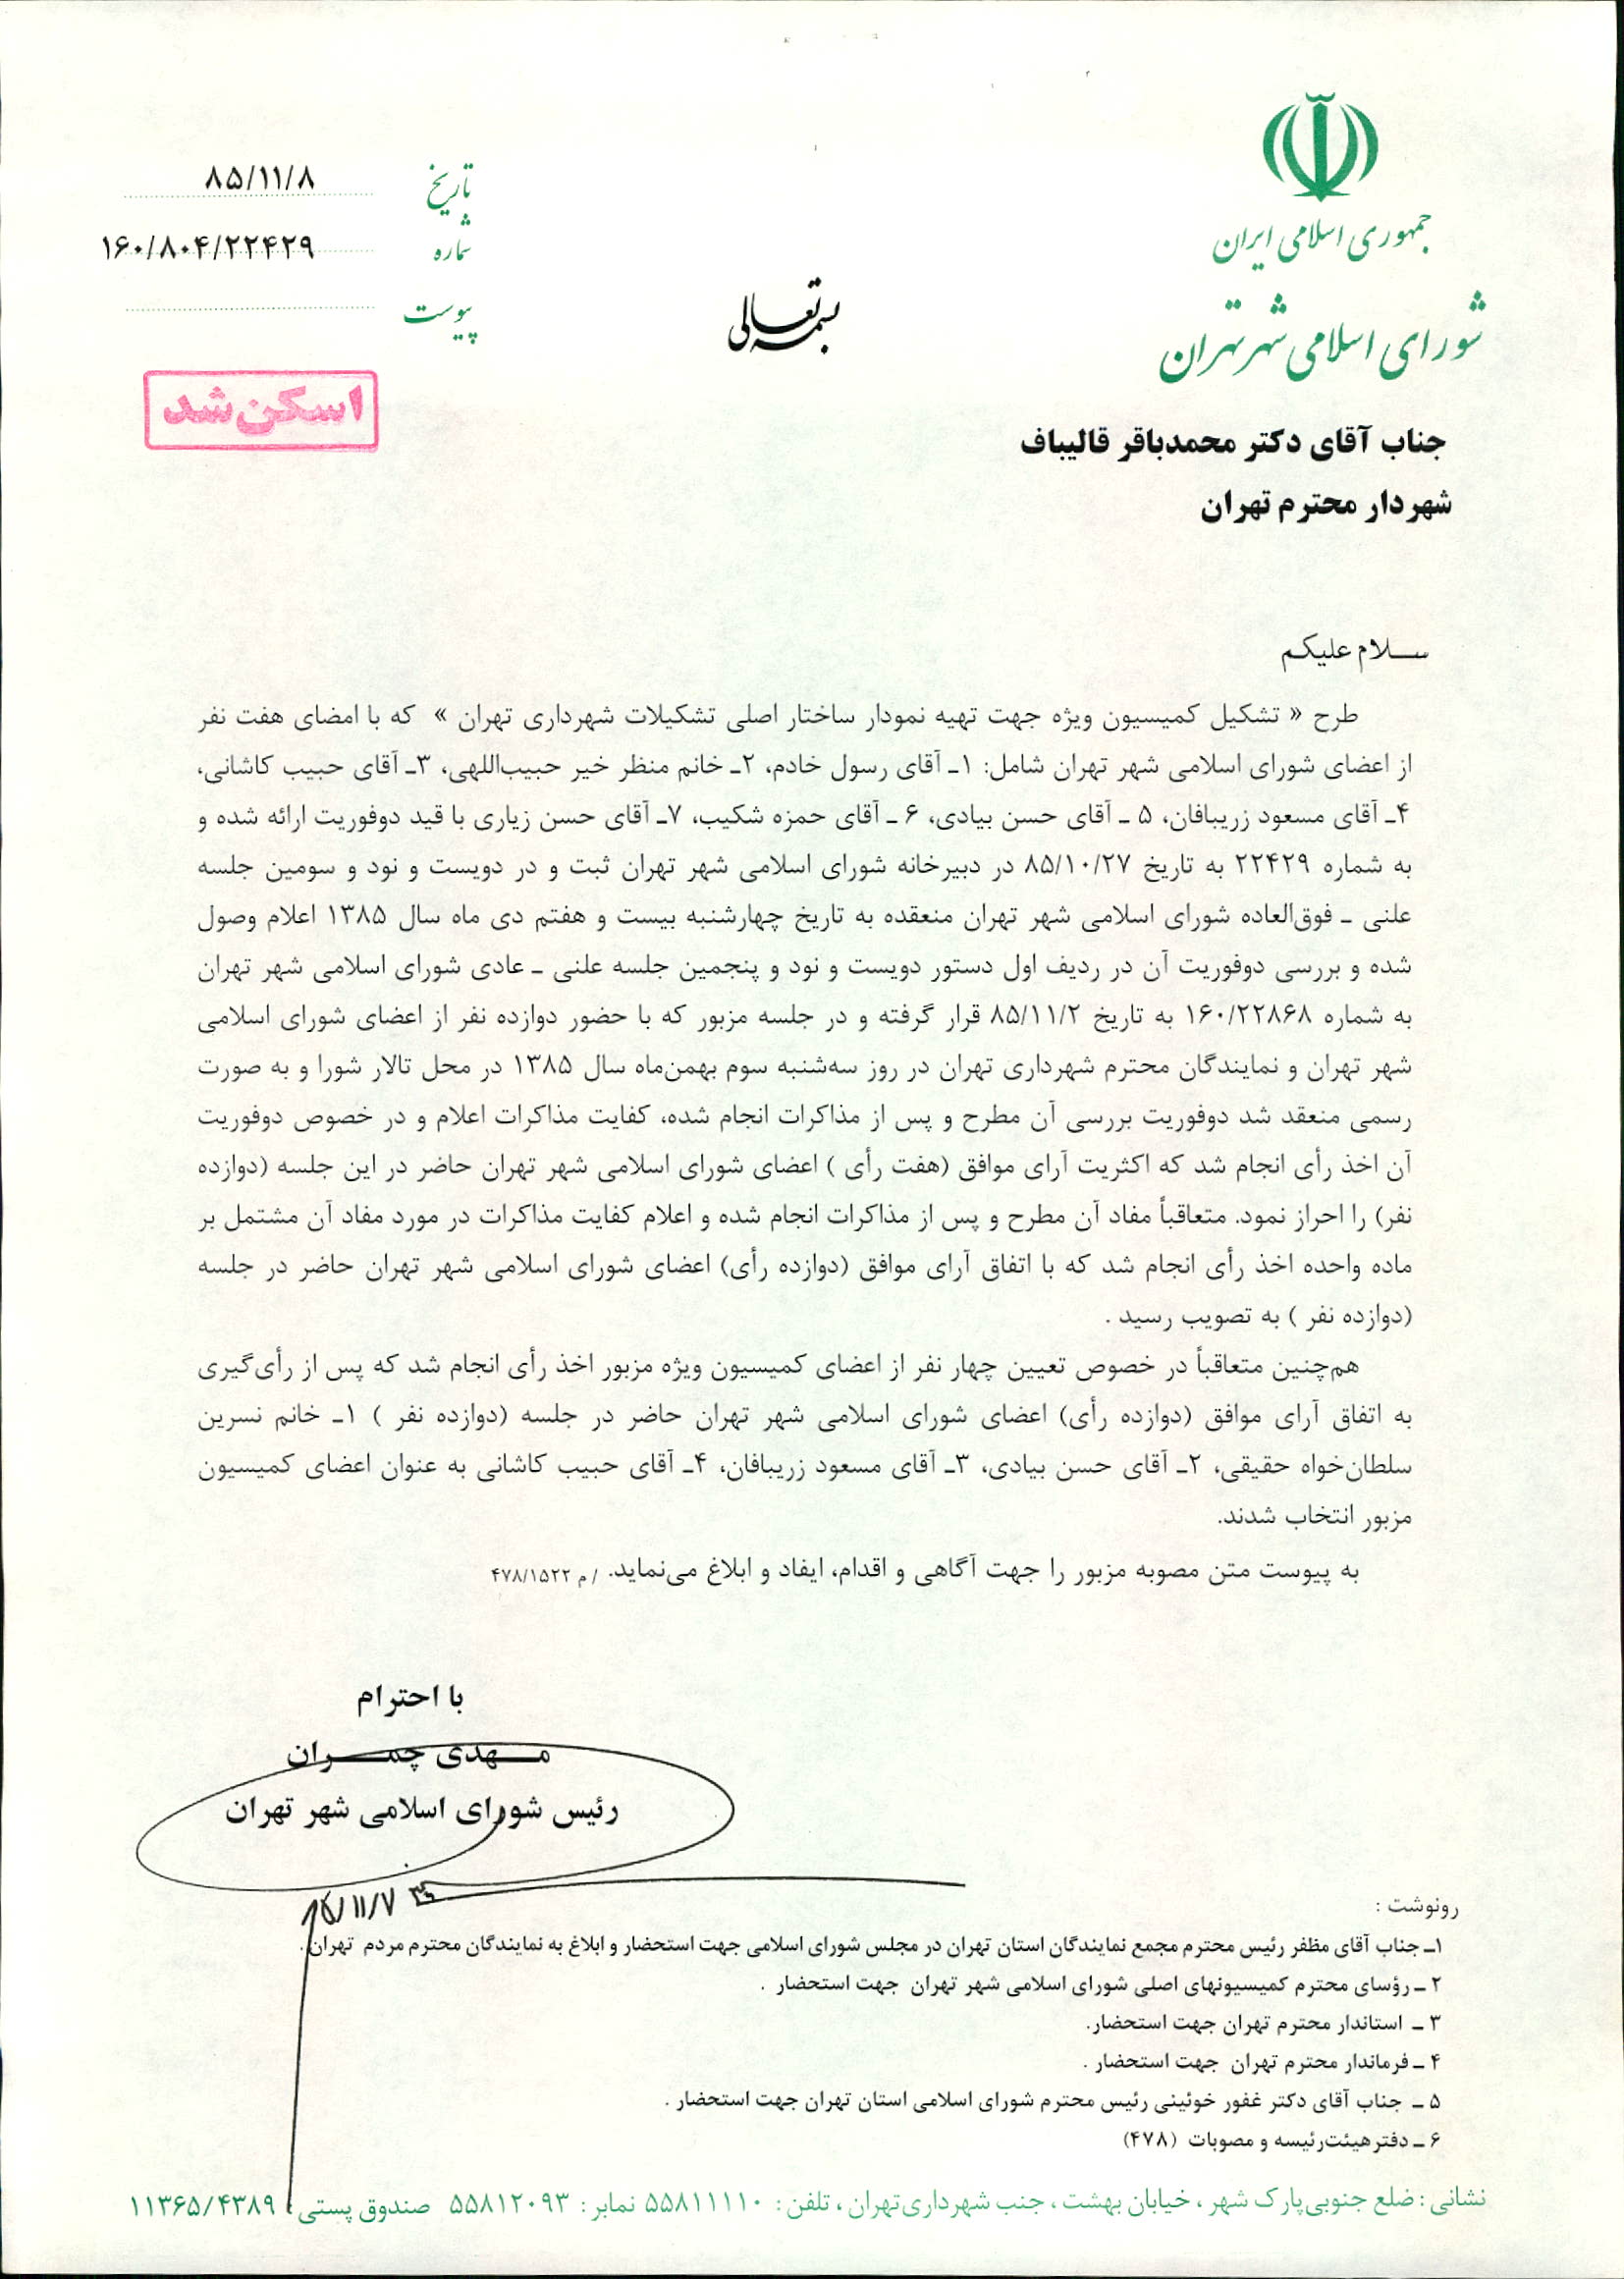 جمهوری اسلامی ایران
شورای اسلامی شهر تهران
تاریخ ۸۵/۱۱/۸
شماره ۱۶۰/۸۰۴/۲۲۴۲۹
پیوست
بسمه تعالی
اسکن شد
جناب آقای دکتر محمدباقر قالیباف
شهردار محترم تهران
سلام علیکم
طرح « تشکیل کمیسیون ویژه جهت تهیه نمودار ساختار اصلی تشکیلات شهرداری تهران » که با امضای هفت نفر
از اعضای شورای اسلامی شهر تهران شامل: ۱ـ آقای رسول خادم، ۲ـ خانم منظر خیر حبیب‌اللهی، ۳ـ آقای حبیب کاشانی،
۴ـ آقای مسعود زریبافان، ۵ ـ آقای حسن بیادی، ۶ ـ آقای حمزه شکیب، ۷ـ آقای حسن زیاری با قید دوفوریت ارائه شده و
به شماره ۲۲۴۲۹ به تاریخ ۸۵/۱۰/۲۷ در دبیرخانه شورای اسلامی شهر تهران ثبت و در دویست و نود و سومین جلسه
علنی ـ فوق‌العاده شورای اسلامی شهر تهران منعقده به تاریخ چهارشنبه بیست و هفتم دی ماه سال ۱۳۸۵ اعلام وصول
شده و بررسی دوفوریت آن در ردیف اول دستور دویست و نود و پنجمین جلسه علنی ـ عادی شورای اسلامی شهر تهران
به شماره ۱۶۰/۲۲۸۶۸ به تاریخ ۸۵/۱۱/۲ قرار گرفته و در جلسه مزبور که با حضور دوازده نفر از اعضای شورای اسلامی
شهر تهران و نمایندگان محترم شهرداری تهران در روز سه‌شنبه سوم بهمن‌ماه سال ۱۳۸۵ در محل تالار شورا و به صورت
رسمی منعقد شد دوفوریت بررسی آن مطرح و پس از مذاکرات انجام شده، کفایت مذاکرات اعلام و در خصوص دوفوریت
آن اخذ رأی انجام شد که اکثریت آرای موافق (هفت رأی ) اعضای شورای اسلامی شهر تهران حاضر در این جلسه (دوازده
نفر) را احراز نمود. متعاقباً مفاد آن مطرح و پس از مذاکرات انجام شده و اعلام کفایت مذاکرات در مورد مفاد آن مشتمل بر
ماده واحده اخذ رأی انجام شد که با اتفاق آرای موافق (دوازده رأی) اعضای شورای اسلامی شهر تهران حاضر در جلسه
(دوازده نفر ) به تصویب رسید .
هم‌چنین متعاقباً در خصوص تعیین چهار نفر از اعضای کمیسیون ویژه مزبور اخذ رأی انجام شد که پس از رأی‌گیری
به اتفاق آرای موافق (دوازده رأی) اعضای شورای اسلامی شهر تهران حاضر در جلسه (دوازده نفر ) ۱ـ خانم نسرین
سلطان‌خواه حقیقی، ۲ـ آقای حسن بیادی، ۳ـ آقای مسعود زریبافان، ۴ـ آقای حبیب کاشانی به عنوان اعضای کمیسیون
مزبور انتخاب شدند.
به پیوست متن مصوبه مزبور را جهت آگاهی و اقدام، ایفاد و ابلاغ می‌نماید. / م ۴۷۸/۱۵۲۲
با احترام
مهدی چمران
رئیس شورای اسلامی شهر تهران
رونوشت :
۱ـ جناب آقای مظفر رئیس محترم مجمع نمایندگان استان تهران در مجلس شورای اسلامی جهت استحضار و ابلاغ به نمایندگان محترم مردم تهران.
۲ ـ رؤسای محترم کمیسیونهای اصلی شورای اسلامی شهر تهران جهت استحضار .
۳ ـ استاندار محترم تهران جهت استحضار.
۴ ـ فرماندار محترم تهران جهت استحضار .
۵ ـ جناب آقای دکتر غفور خوئینی رئیس محترم شورای اسلامی استان تهران جهت استحضار .
۶ ـ دفتر هیئت‌رئیسه و مصوبات (۴۷۸)
نشانی : ضلع جنوبی پارک شهر ، خیابان بهشت ، جنب شهرداری تهران ، تلفن : ۵۵۸۱۱۱۱۰ نمابر : ۵۵۸۱۲۰۹۳ صندوق پستی : ۱۱۳۶۵/۴۳۸۹